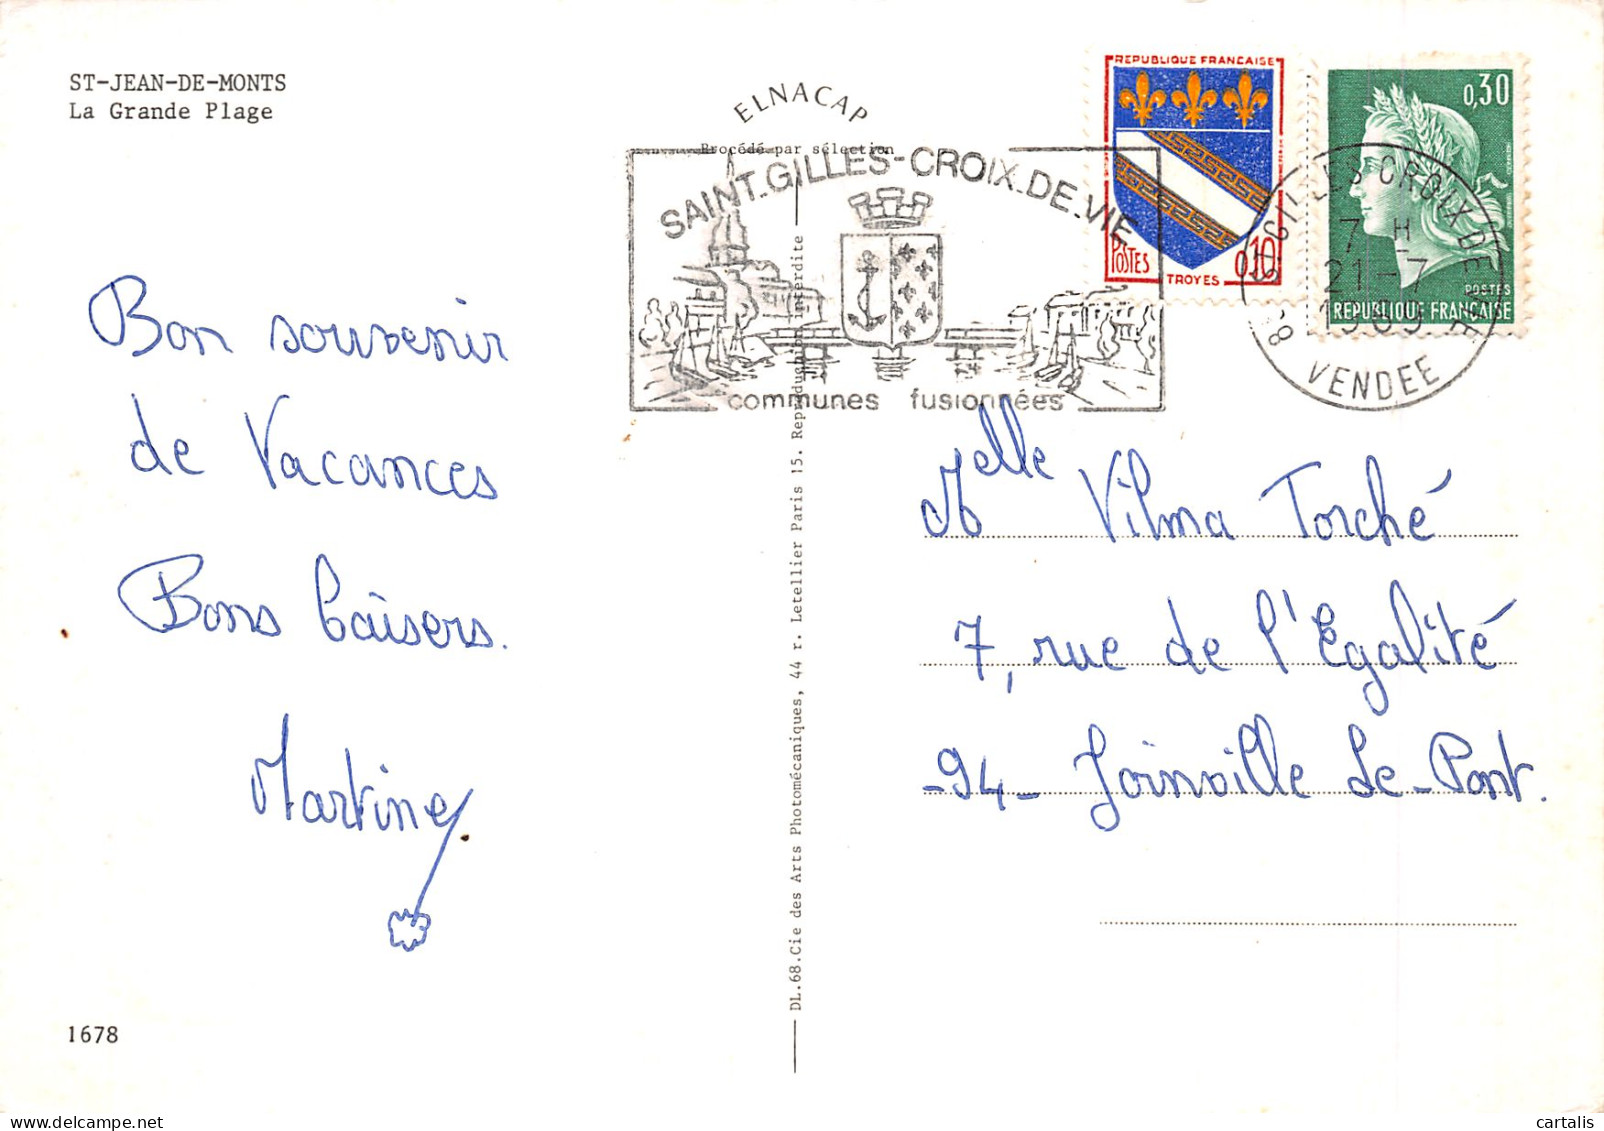 ST-JEAN-DE-MONTS
La Grande Plage
ELNACAP
Procédé par sélection
SAINT.GILLES-CROIX.DE.VIE
communes fusionnées
REPUBLIQUE FRANCAISE
POSTES
0,10
TROYES
0,30
POSTES
REPUBLIQUE FRANÇAISE
GILLES CROIX DE VIE
7 H
21-7
1969
VENDEE
Bon souvenir
de Vacances
Bons baisers.
Martine
Melle Vilma Torché
7, rue de l'Egalité
-94- Joinville Le-Pont.
DL.68.Cie des Arts Photomécaniques, 44 r. Letellier Paris 15. Reproduction interdite
1678
cartalis